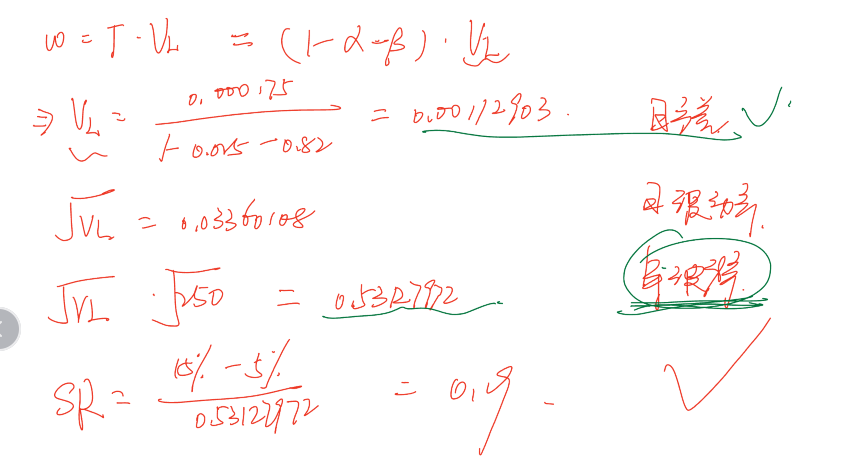 ω = γ · V_L = (1-α-β) · V_L
⇒ V_L = 0.000175 / (1-0.025-0.82) = 0.00112903. 日方差
√V_L = 0.03360108 日波动率.
√V_L · √250 = 0.5312792 年波动率.
SR = (15% - 5%) / 0.53127972 = 0.19